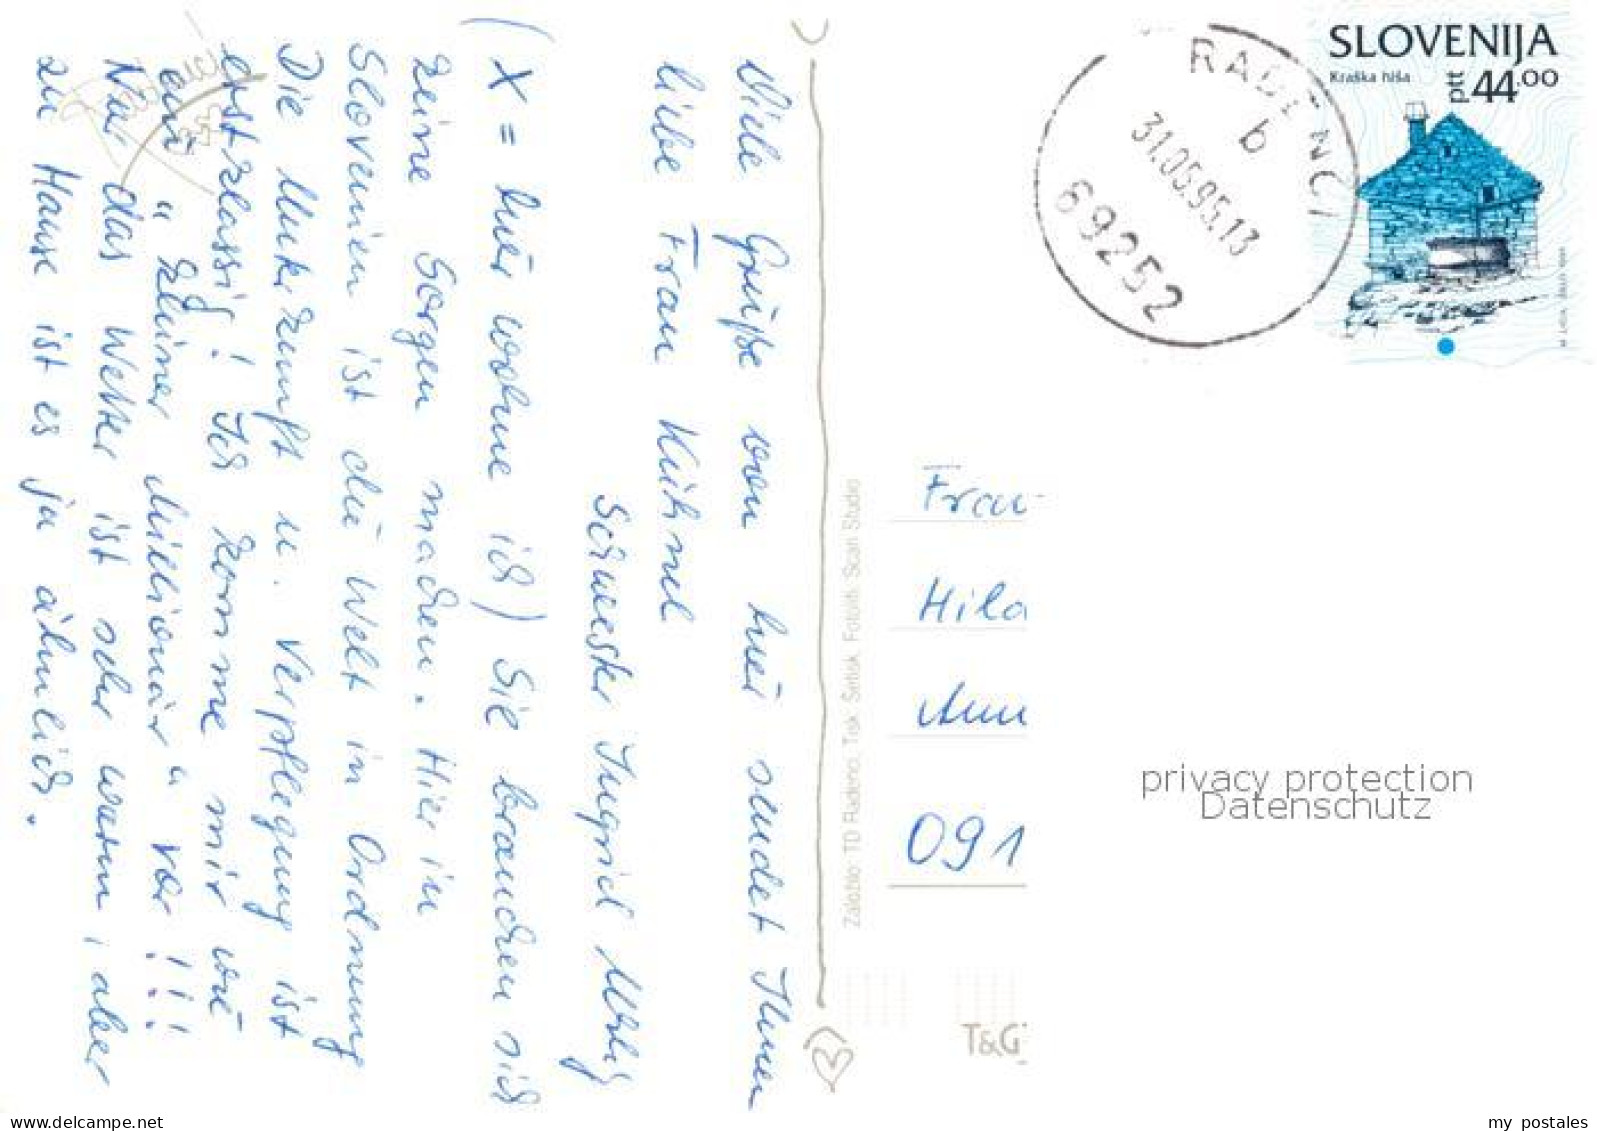 Viele Grüße von hier sendet Ihnen
liebe Frau Kühnel
Schwester Ingrid
(X = hier wohne ich) Sie brauchen sich
keine Sorgen machen. Hier in
Slovenien ist die Welt in Ordnung
Die Unterkunft u. Verpflegung ist
erstklassig! Ich komme mir wie
ein "kleiner Millionär" vor!!!
Nur das Wetter ist sehr warm, aber
zu Hause ist es ja ähnlich.
Založilo: TD Radenci, Tisk: Setisk, Fotoliti: Scan Studio
T&G
SLOVENIJA
Kraška hiša
ptt 44.00
RADENCI
b
31.05.95.13
69252
Frau
Hild
091
privacy protection
Datenschutz
delcampe.net
my_postales